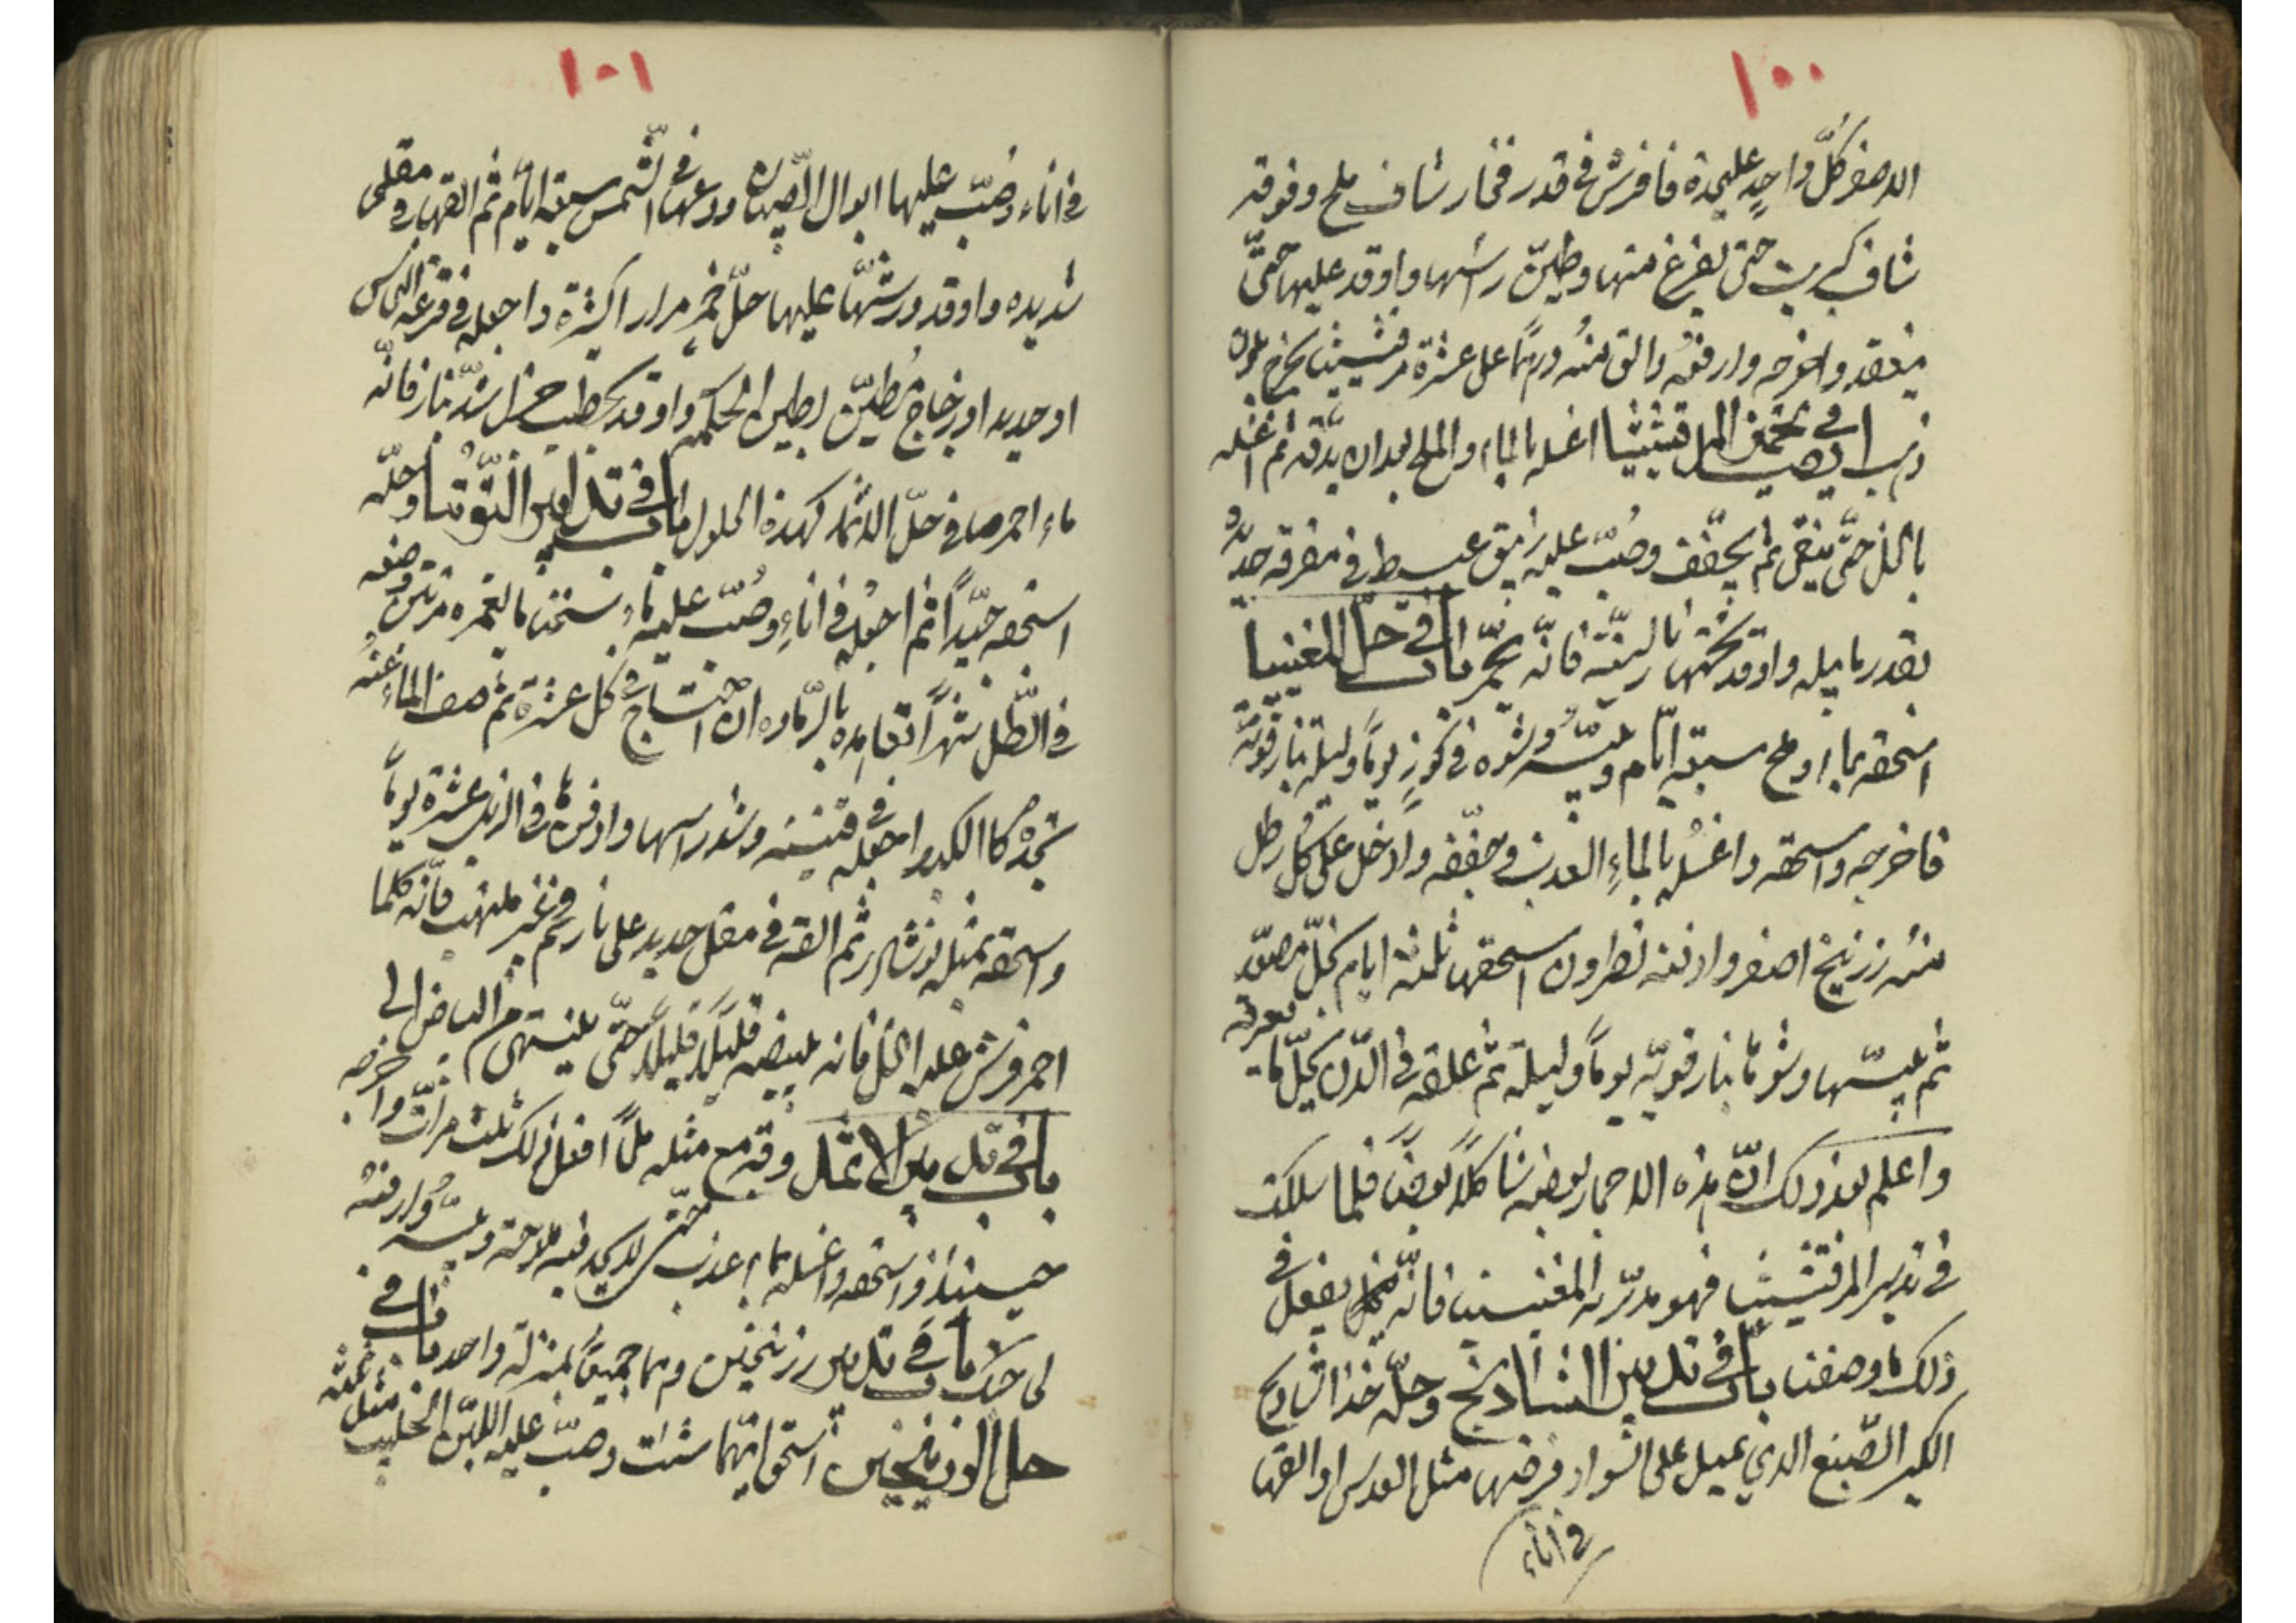 ١٠٠
الاصفر كلّ واحدٍ عليحدة فافرش في قدر فخار شاف ملح وفوقه
شاف كبريت حتى تفرغ منها وطيّن رأسها واوقد عليها حتّى
ينعقد واخرجه وارفعه والق منه درهمًا على عشرة مرقشيثا يخرج
ذهب باب في تحمير المرقشيثا اغسله بالماء والملح بعد ان تدّقه ثم اغسله
بالخل حتّى ينقى ثم يجفّف وصُبّ عليه زيبق عبيط في مغرفة حديد
بقدر ما يبله واوقد تحتها نار لينة فانّه يحمّر باب في حلّ المغنيسيا
اسحقه بماء وملح سبعة ايّام ويبّسه وشوه في كوزٍ يوماً وليلة بنار قويّة
فاخرجه واسحقه واغسله بالماءِ العذب وجفّفه وادخل على كل رطل
منه زرنيخ اصفر واوقية نطرون اسحقها ثلثة ايام بخلّ مصعّد
ثم يبّسها وشوها بنار قويّة يوماً وليلة ثم علقه في الدّن يحلّ ماء
واعلم بعد ذلك انّ هذه الاحجار بعضه شاكلاً بعضاً فلما سلكت
في تدبير المرقشيثا فهو مدبّر به المغنيسيا فانّه يفعل في
ذلك ما وصفنا باب في تدبير الشادنج وحلّه خذ الشادنج
الكبير الصّبغ الذي يميل على السواد فرضها مثل العدس او القها
في اناء
١٠١
في اناء وصُبّ عليها ابوال الصّبيان ودعها في الشّمس سبعة ايّام ثم القها في مقلى
شديده واوقد ورشّها عليها خلّ خمر مرارا كثيرة واجعله في قرعة النحاس
او حديد او زجاج مُطيّن بطين الحكمة واوقد بحطب جزل اشدّ نار فانّه
ماء احمر صافي حلّ الاثمد كهذه الحلول باب في تدابير التّوتيا وحلّه
اسحقه جيّداً ثم اجعله في اناءٍ وصُبّ عليه ماء سخنا ما يغمره مرتين وضعه
في الظّل شهراً تعامده بالزّياده ان احتاج في كل عشرة ثم صف الماء عنه
تجده كالكدر اجعله في قنينة وشد راسها وادفنها في الزبل عشرة يوماً
واسحقه بمثله نوشادر ثم القه في مقلى حديد على نار فحم غير ملتهب فانّه كلما
احمر فرش عليه الخل فانه يبيضه قليلاً قليلاً حتّى ينتهي من البياض الى
باب في تدبير الاثمد دقه مع مثله ملحاً افعل ذلك ثلث مرّات واخرجه
حينئذ واسحقه واغسله بماء عذب حتى لا يجد فيه ملاحة ويبّسه وارفعه
الى حدّ باب في تدبير زرنيخين وهما جميعاً بمنزلة واحد باب في
حل الزرنيخين اسحق ايّهما شئت وصبّ عليه اللبن الحليب مثل